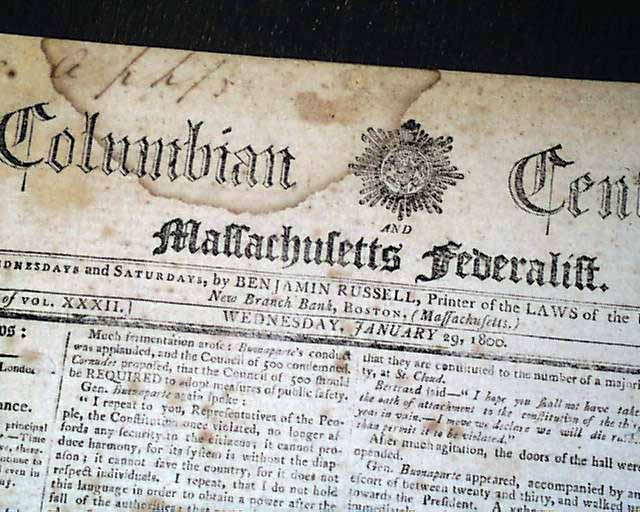 Columbian
AND
Massachusetts Federalist.
and SATURDAYS, by BENJAMIN RUSSELL, Printer of the LAWS of the
New Branch Bank, BOSTON, (Massachusetts.)
of VOL. XXXII.]
WEDNESDAY, JANUARY 29, 1800.
London
principal
—Time
even in
Much fermentation arose: Buonaparte's conduct
was applauded, and the Council of 500 condemned.
Cornudet proposed, that the Council of 500 should
be REQUIRED to adopt measures of public safety.
Gen. Buonaparte again spoke:
" I repeat to you, Representatives of the Peo-
ple, the Constitution once violated, no longer af-
fords any security to the citizens; it cannot pro-
duce harmony, for its system is without the diap
ason; it cannot save the country, for it does not
respect individuals. I repeat, that I do not hold
this language in order to obtain a power after the
fall of the authorities: that
that they are constituted to the number of a major
ty, at St. Cloud.
Bertrand said—" I hope you shall not have tak
the oath of attachment to the constitution of the
year in vain.—I move we declare we will die
than permit it to be violated."
After much agitation, the doors of the hall were
opened.
Gen. Buonaparte appeared, accompanied by an
escort of between twenty and thirty, and walked
towards the President. A
immediately